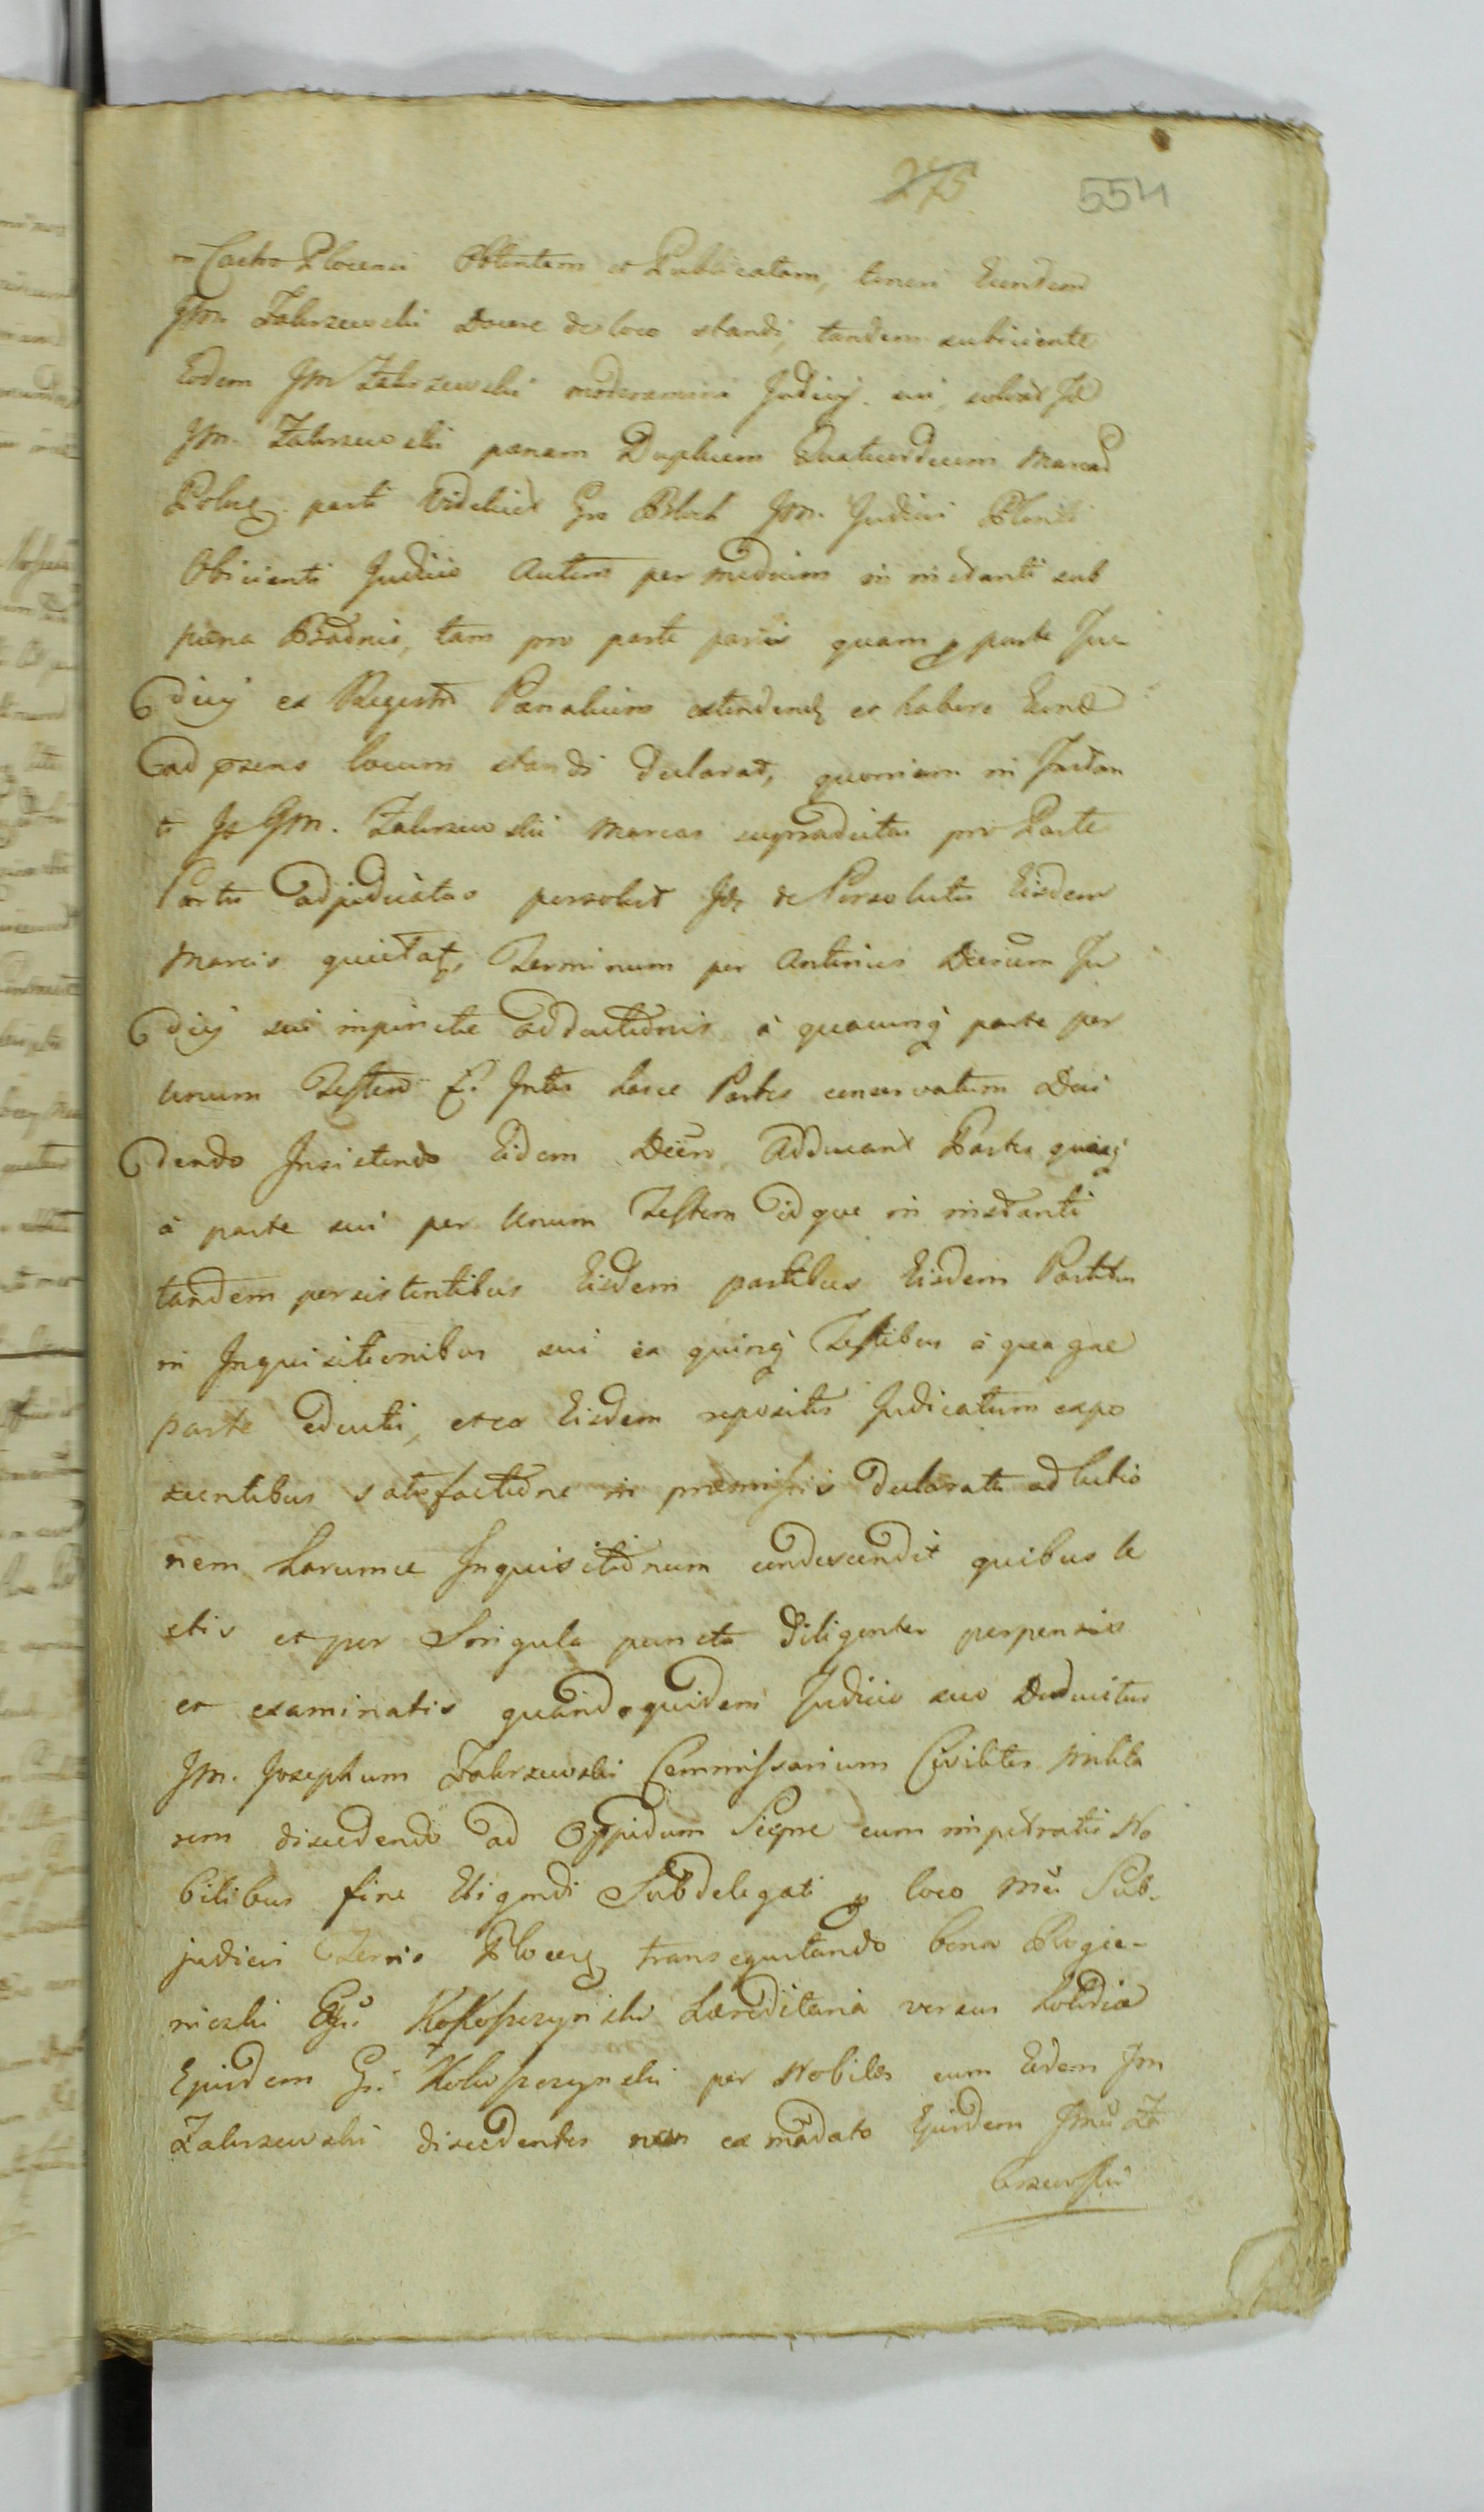 275 554
in Castro Plocensi Obtentam et Publicatam, teneri Eundem
Jm. Zakrzewski Docere de loco standi, tandem subiiciente
Eodem Jm Zakrzewski moderamini Judicij sui, solvat Id
Jm. Zakrzewski panam Duplicem Quatuordecim Marcar
parti Videlicet Gro Jm. Judici
Obiicienti Judicio Autem per medium in instanti sub
pæna Bannis, tam pro parte partis quam p parte Ju-
dicij ex Regestri Pænalium extendend et habere Eund
ad præsens locum standi declarat, quoniam in Instan
ti Is Jm. Zakrzewski Marcas supradictas pro Parte
Partis adjudicatas persolvit Ide de Persolutis Eisdem
Marcis quietat, Terminum per Anterius Decretum Ju
dicij sui adductionis à quacunq parte per
Unum Testem Inter hasce Partes conservatum Deci
dendo Insistendo Eidem Decreto Adducant Partes quæq
à parte sui per Unum Testem idque in instanti
tandem persistentibus Eisdem partibus Eisdem Partibus
in Inquisitionibus sui ex quinq Testibus à quaque
parte educti, et ex Eisdem repositis Judicatum expo
scentibus satisfactione in præmissis declarata ad lectio
nem harumce Inquisitionum condescendit quibus le
ctis et per Singula puncta diligenter perpensis
et examinatis quandoquidem Judicio suo Deducitur
Jm. Josephum Zakrzewski Commissarium Civilites Milita
rem discedendo ad Oppidum Siepre cum impetratis No
bilibus fine Eligendi Subdelegati p loco Mci Sub-
judicis Terris Plocen transequitando bona Rogie-
niczki Gsi Kokoszczynski hæreditaria versus
Ejusdem Gsi Kokoszczynski per Nobiles cum Eodem Jm
Zakrzewski discedentes non ex mādato Ejusdem Jmci Za
krzewski